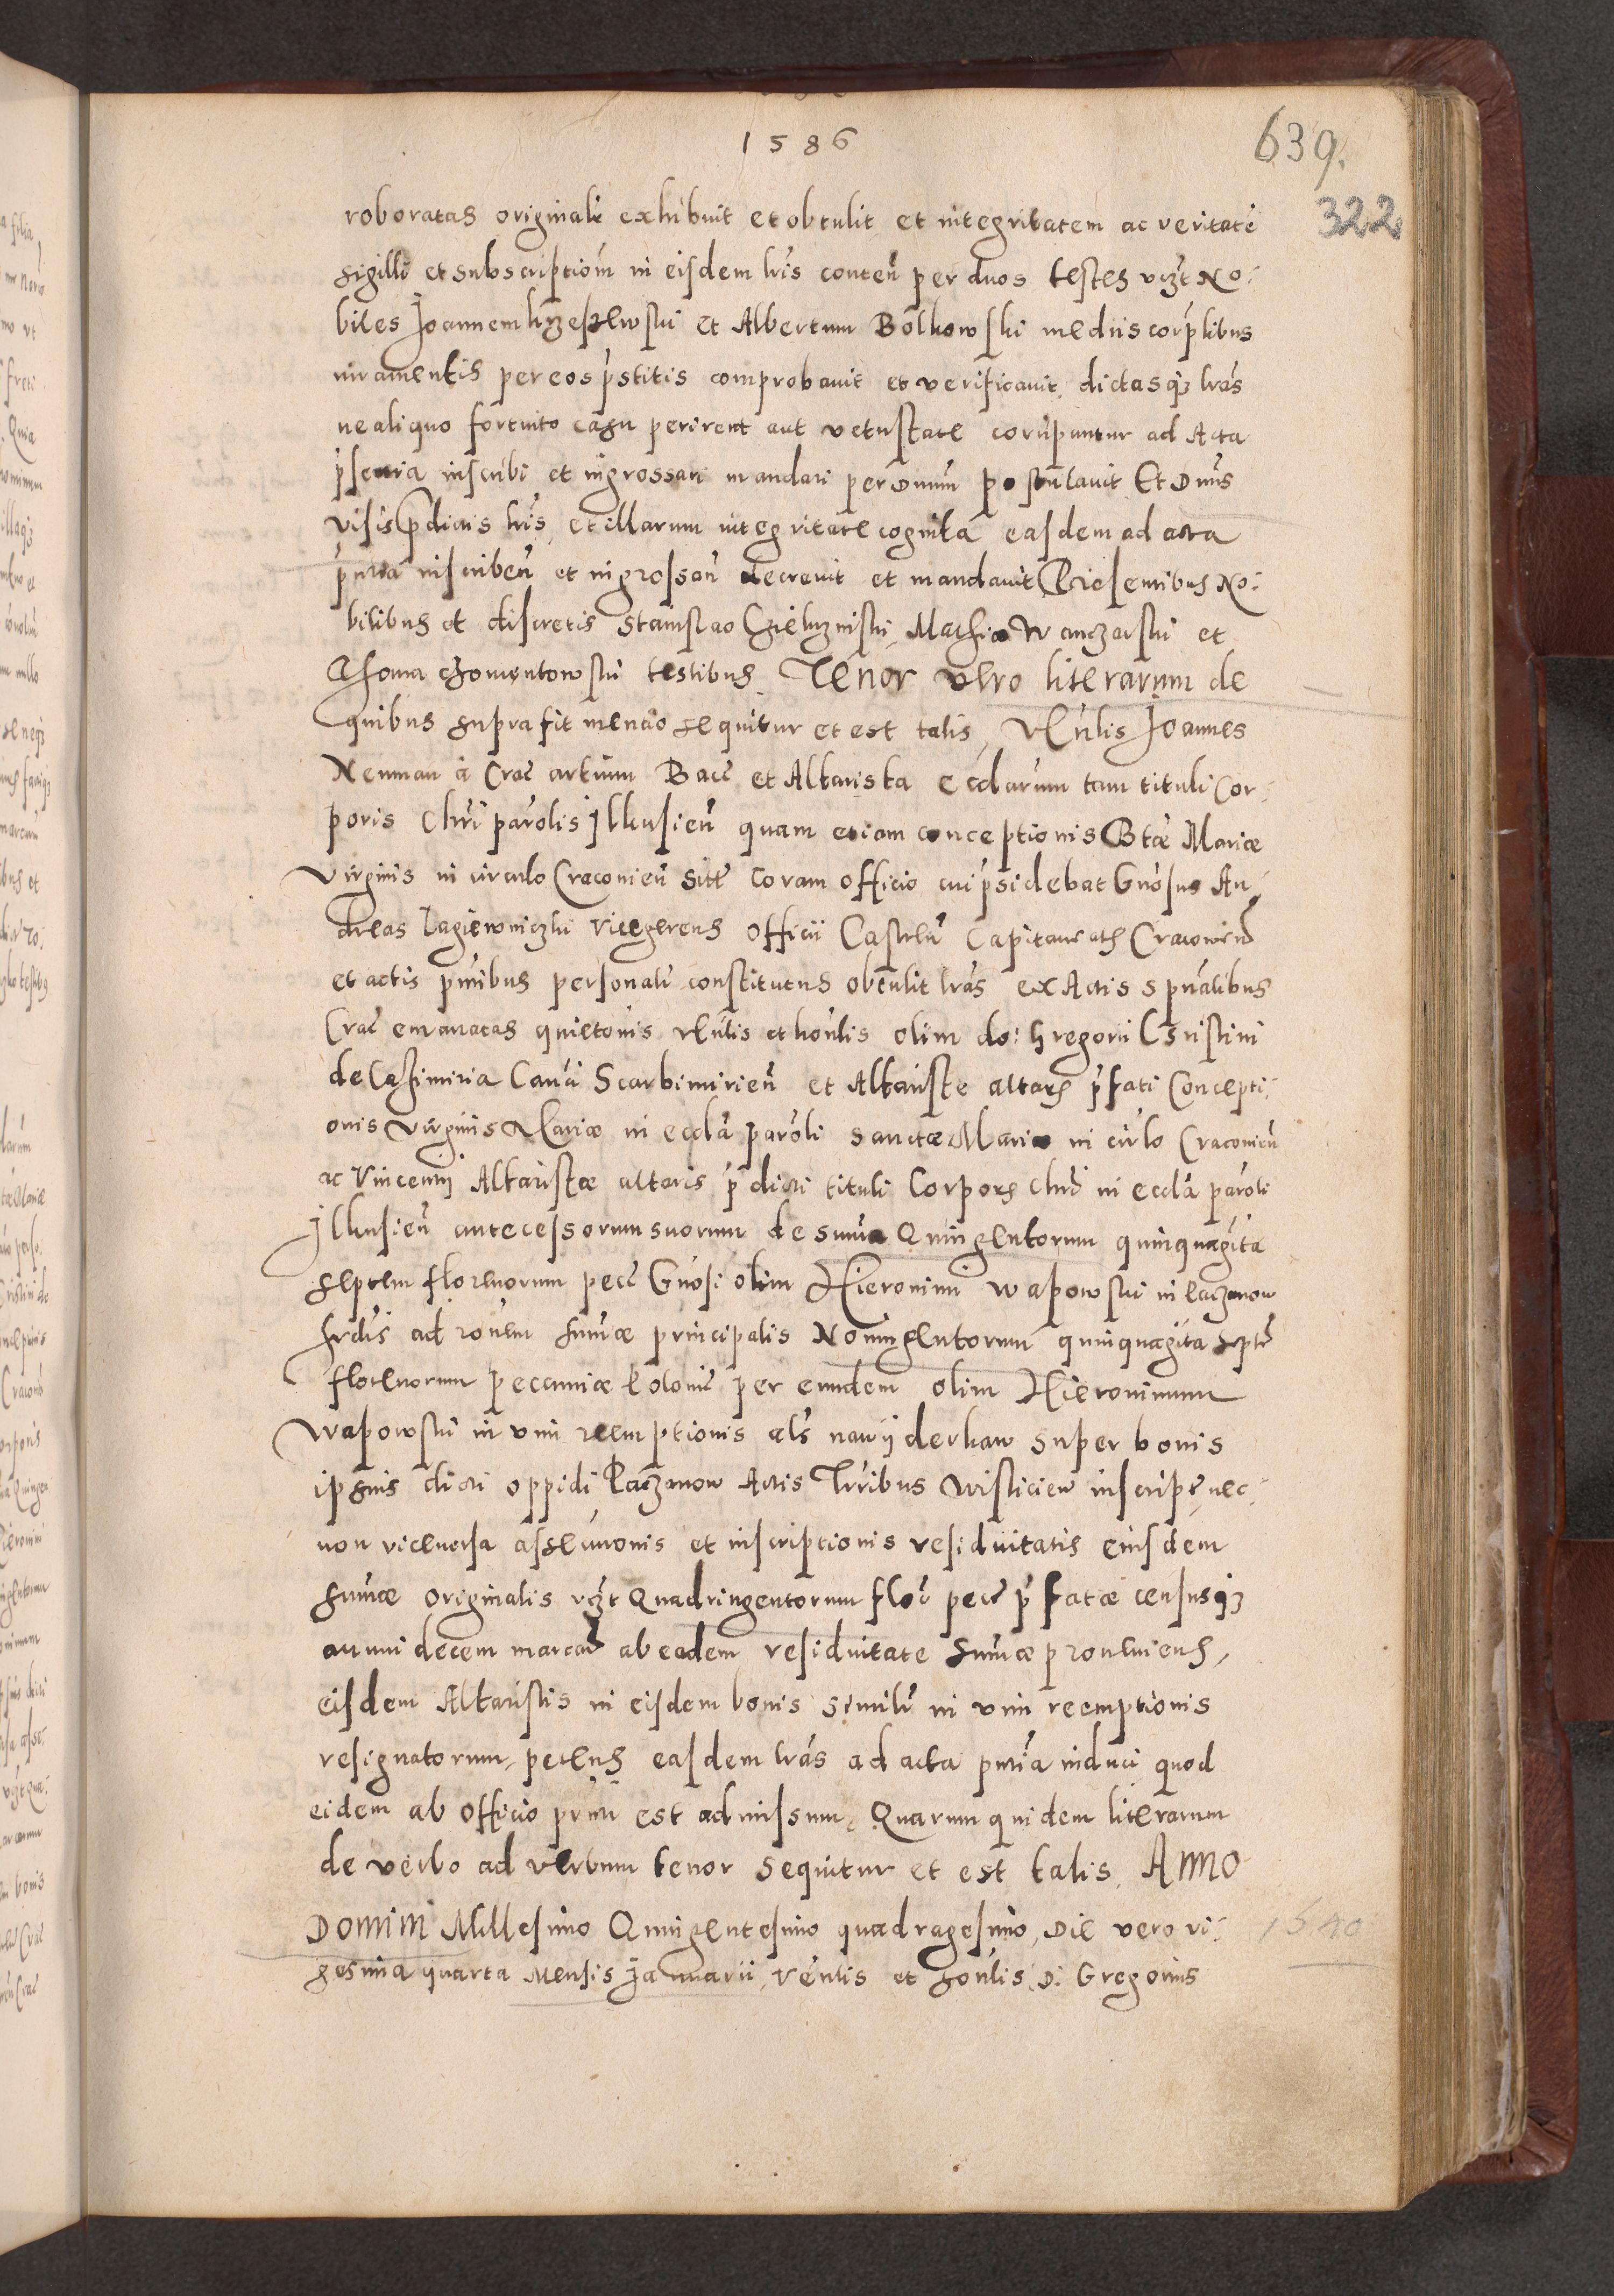 1586
639.
322
roboratas originalr exhibuit et obtulit et integritatem ac veritatē
sigilli et subscriptiom in eisdem lris conteñ per duos testes vzt No:
biles Joannem krzeszewski et Albertum Bolkowski mediis corplibus
iuramentis per eos pstitis comprobavit et verificavit dictasqz lras
ne aliquo fortuito casu perirent aut vetustate corumpantur ad Acta
psentia inscribi et ingrossari mandari per Dnum postulavit Et Dnus
visis pdictis lris et illarum integritate cognita easdem ad acta
pntia inscribeñ et ingrossañ decrevit et mandavit Praesentibus No:
bilibus et discretis Stanislao Mathia Wanczarski et
Thoma Chomentowski testibus Tenor vero literarum de
quibus supra fit mentio sequitur et est talis, Vnlis Joannes
Neuman a Crac artium Bacc et Altarista ecclarum tam tituli Cor:
poris Chri parolis Ilkusieñ quam etiam conceptionis Btae Mariae
Virginis in circulo Cracovieñ sitt coram officio cui psidebat Gnosus An
dreas Lagiewniczki vicegerens officii Castreñ Capitaneatus Cracovieñ
et actis pntibus personalr constitutus obtulit lras ex Actis spualibus
Crac emanatas quietonis Vnlis et honlis olim do: Gregorii Cristini
de Casimiria Canci Scarbimirieñ et Altariste altaris pfati Concepti:
onis Virginis Mariae in ecclā paroli sanctae Mariae in circlo Cracovieñ
ac Vincentij Altaristae altaris pdicti tituli Corporis Chri in ecclā paroli
Ilkusieñ antecessorum suorum de suma Quingentorum quinquagita
septem florenorum pecc Gnosi olim Hieronimi Wapowski in Paczanow
hrdis ad ronem sumae principalis Noningentorum quinquagita septē
florenorum pecuniae Polonic per eundem olim Hieronimum
Wapowski in vim reemptionis als na wijderkaw super bonis
ipsius dicti oppidi Paczanow Actis Trribus Wislicien inscript nec
non viceversa assecuronis et inscriptionis residuitatis eiusdem
sumae originalis vzt Quadringentorum flor pecc pfatae censusqz
annui decem marcar ab eadem residuitate sumae proveniens,
eisdem Altaristis in eisdem bonis similr in vim reemptionis
resignatorum, petens easdem lras ad acta pntia induci quod
eidem ab officio pnti est admissum. Quarum quidem literarum
de verbo ad verbum tenor sequitur et est talis. Anno
Domini Millesimo Quingentesimo quadragesimo, Die vero vi:
gesima quarta Mensis Januarii, Venlis et honlis D: Gregorius
1540